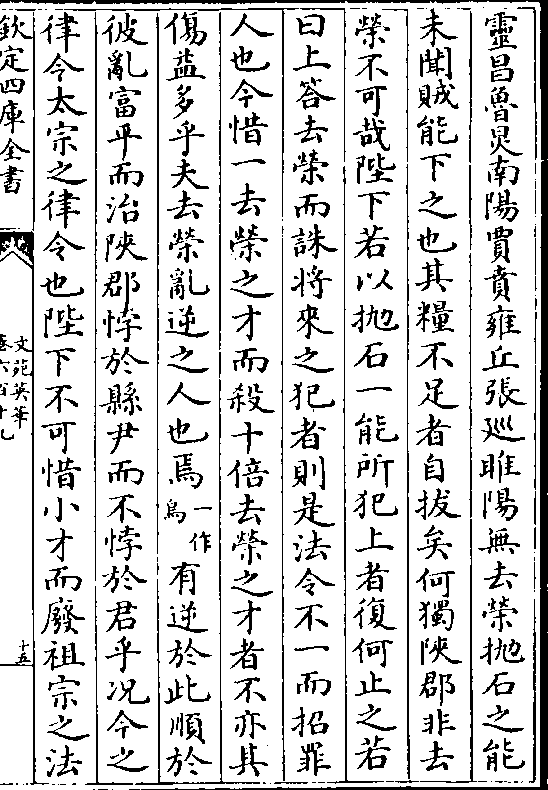 靈昌魯炅南陽賈賁雍丘張廵睢陽無去榮抛石之能
未聞賊能下之也其糧不足者自拔矣何獨陜郡非去
榮不可哉陛下若以抛石一能所犯上者復何止之若
曰上答去榮而誅将來之犯者則是法令不一而招罪
人也今惜一去榮之才而殺十倍去榮之才者不亦其
傷葢多乎夫去榮亂逆之人也焉一作烏有逆於此順於
彼亂富平而治陜郡悖於縣尹而不悖於君乎况今之
律令太宗之律令也陛下不可惜小才而廢祖宗之法
欽定四庫全書
文苑英華
卷六百十九
十五